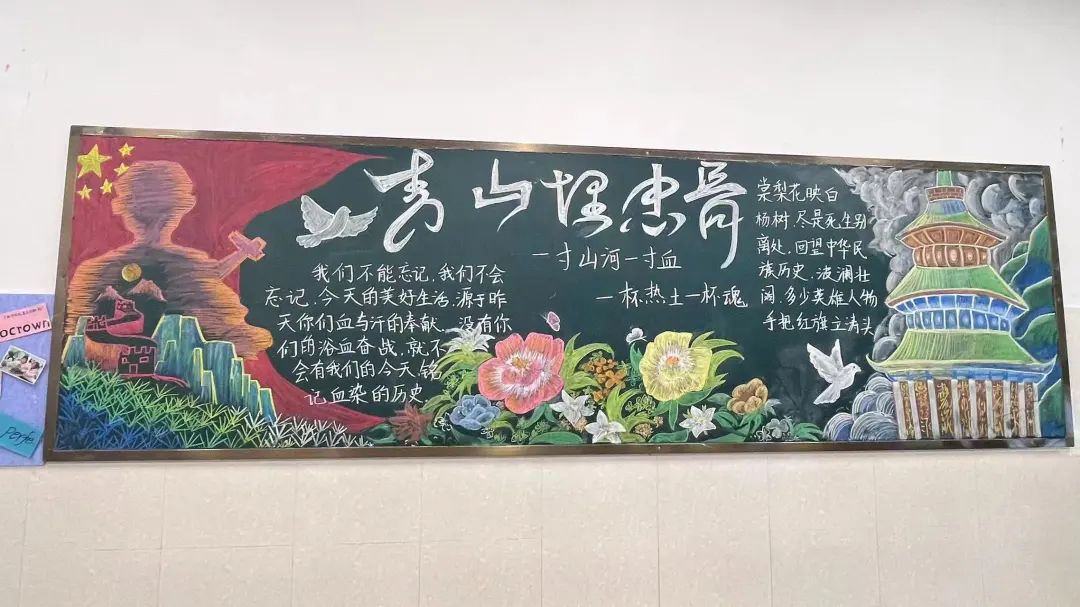 青山埋忠骨
一寸山河一寸血
一杯热土一杯魂
我们不能忘记,我们不会
忘记,今天的美好生活,源于昨
天你们血与汗的奉献,没有你
们的浴血奋战,就不
会有我们的今天,铭
记血染的历史
棠梨花映白
杨树,尽是死生别
离处,回望中华民
族历史,波澜壮
阔,多少英雄人物
手把红旗立涛头
acrown